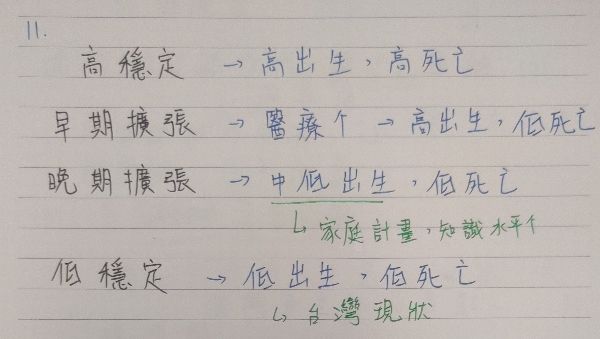 11.
高穩定 → 高出生，高死亡
早期擴張 → 醫療↑ → 高出生，低死亡
晚期擴張 → 中低出生，低死亡
↳ 家庭計畫，知識水平↑
低穩定 → 低出生，低死亡
↳ 台灣現狀